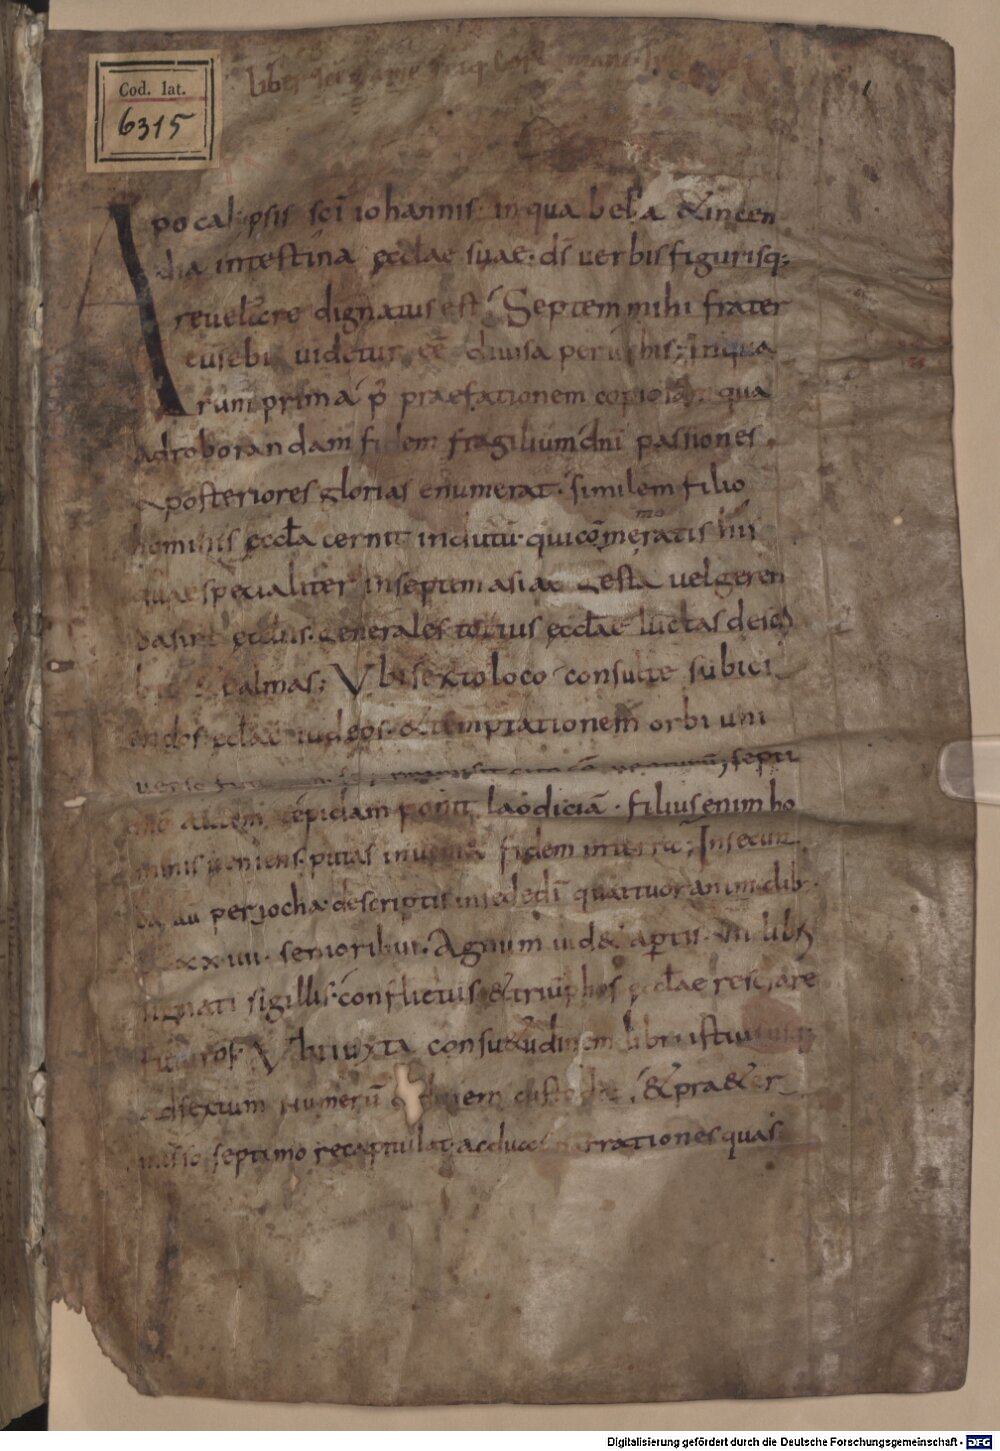 Cod. lat.
6315
liber
1
Apocalipsis sci iohannis in qua bella & incen
dia intestina ęcclae suae · ds uerbis figurisq;
reuelare dignatus est; Septem mihi frater
eusebi uidetur eē diuisa periochis; in qua
rum prima p praefationem copiosam qua
adroborandam fidem fragilium dni passiones
& posteriores glorias enumerat · similem filio
hominis ęccla cernit indutū · qui cōmeratis hii
mo
quae specialiter in septem asiae gesta uel geren
da sint ęcclis · generales totius ęcclae luctas desc
& palmas; Vbi sexto loco consulte subici
endos ęcclae iudeos · & temptationem orbi uni
septi
mo autem tepidam ponit laodiciā · filius enim ho
minis ueniens putas inueniet fidem in terra; In secun
da aū periocha · descriptis in sede di quattuor animalib·
& xxiiii · senioribus · Agnum uidet apertis · vii libri
signati sigillis · conflictus & triumphos ęcclae reserare
futuros · Vbi iuxta consuetudinem libri istius usq;
ad sextum numerū ordinem custodit; & praeter
misso septimo recapitulat · ac duas narrationes quasi
Digitalisierung gefördert durch die Deutsche Forschungsgemeinschaft - DFG